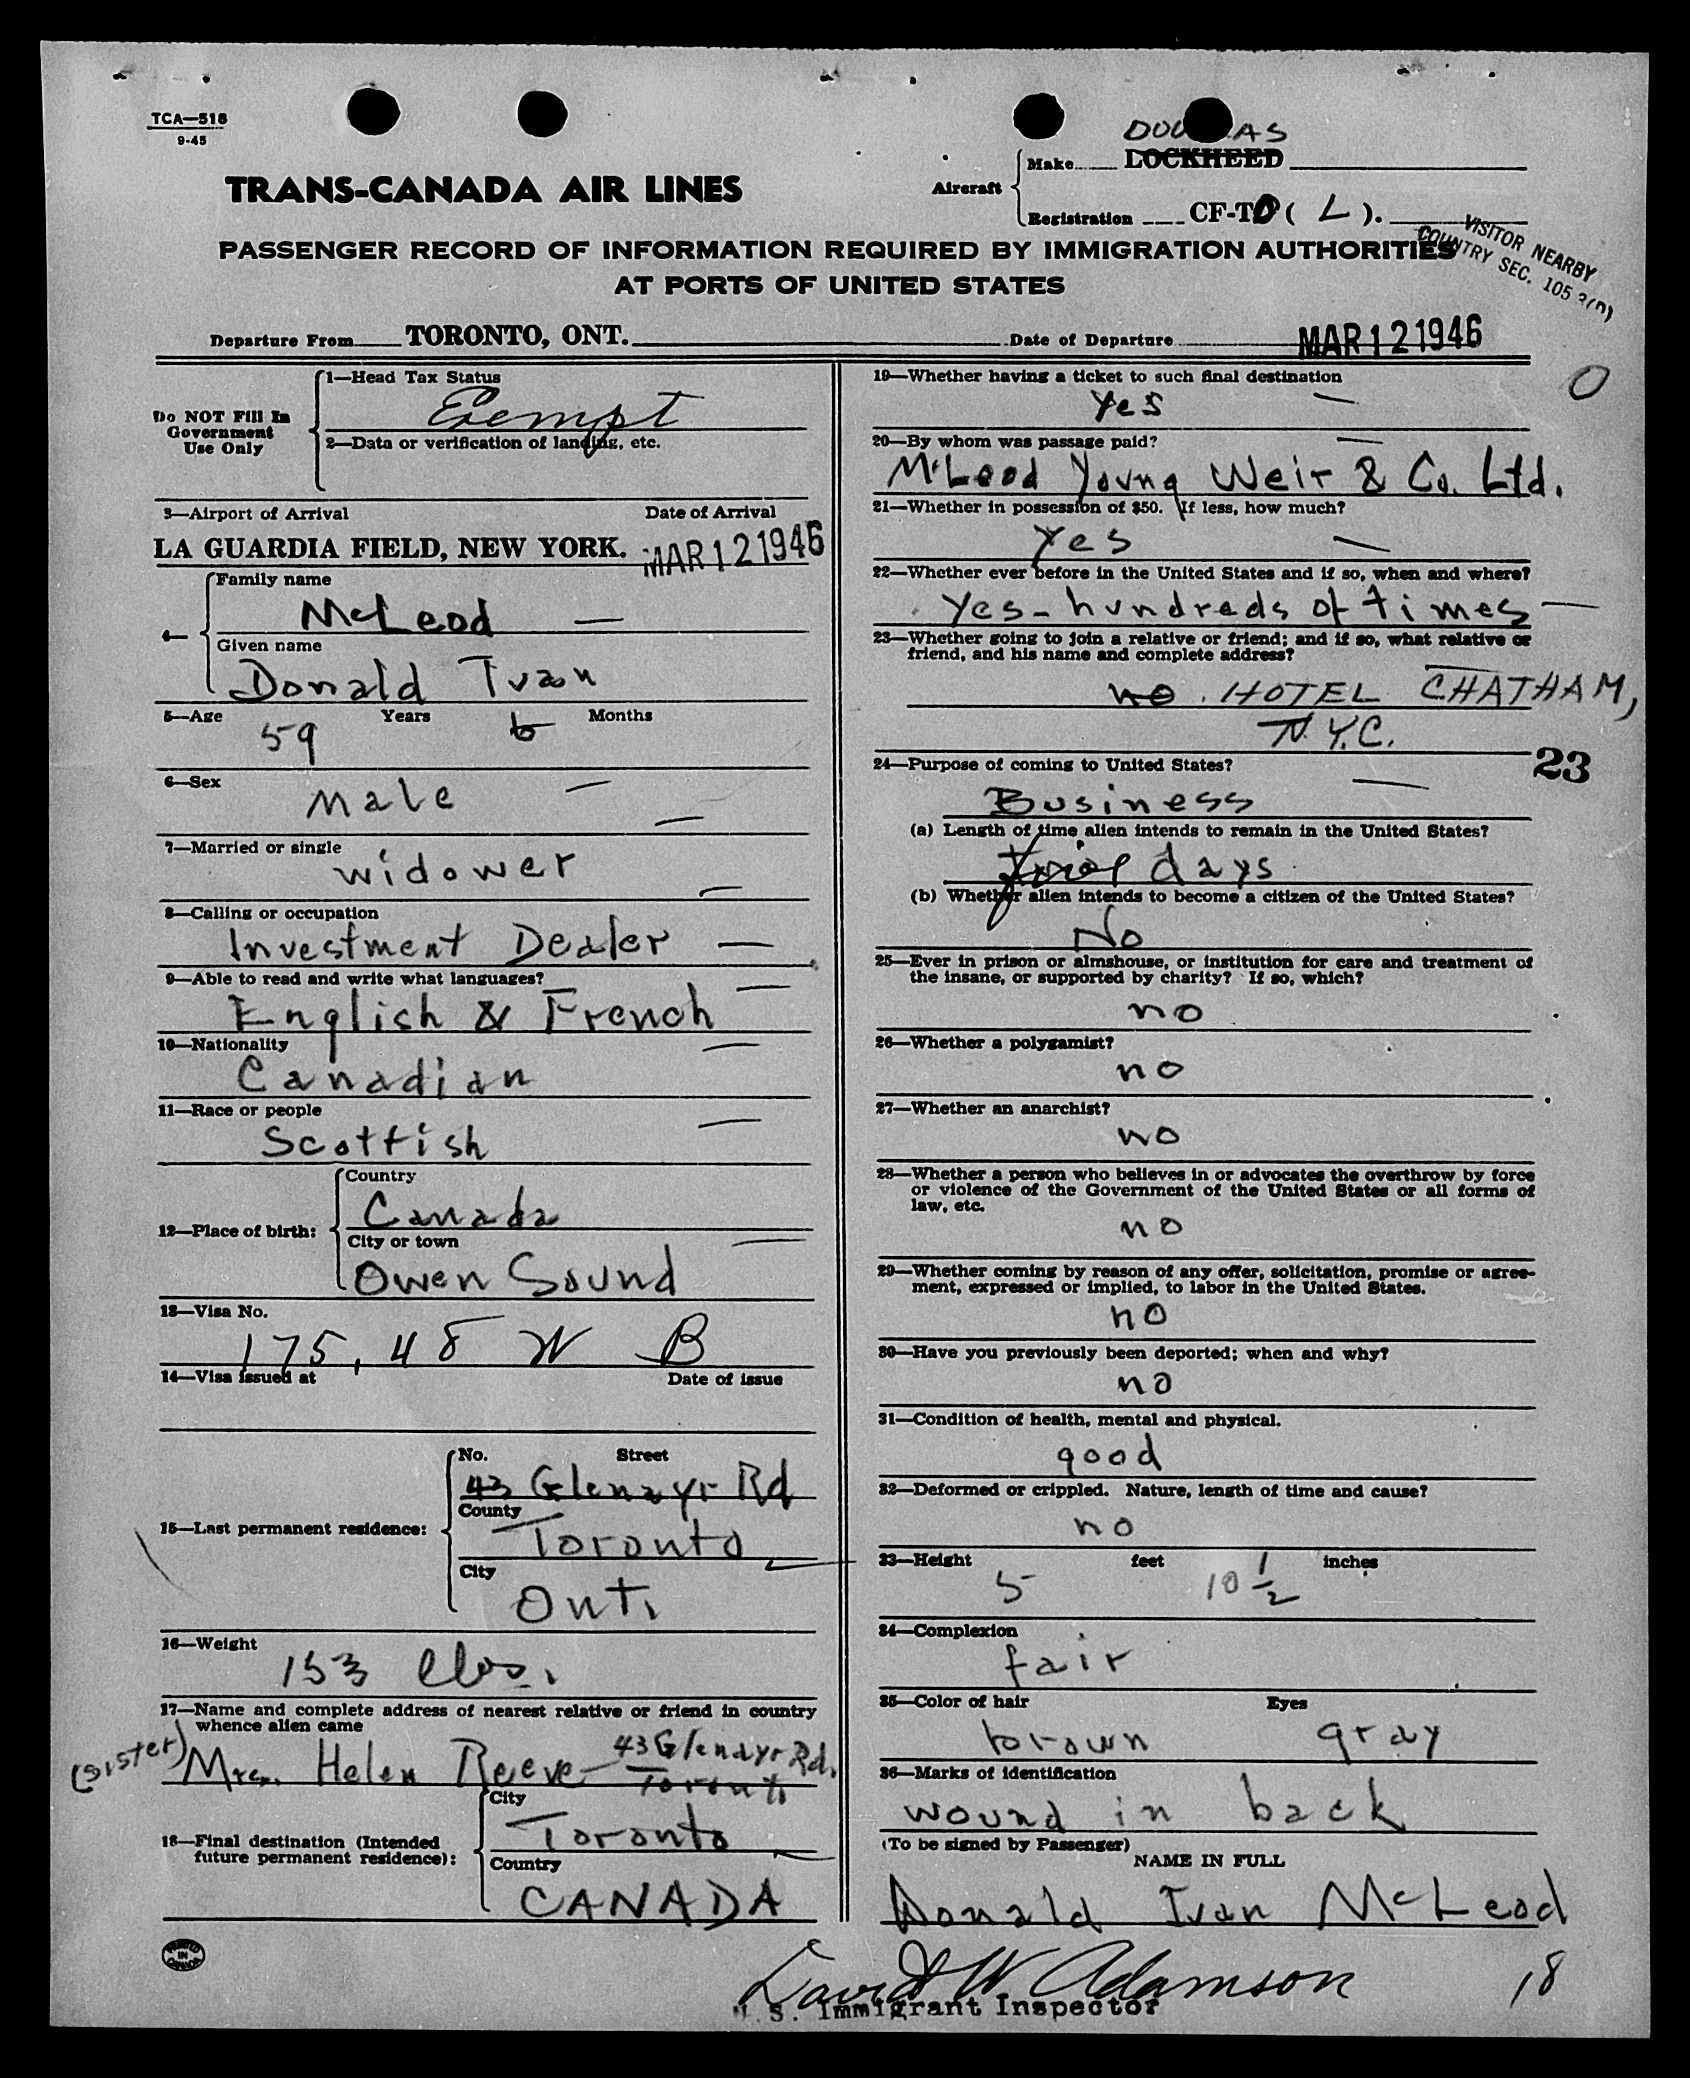 TCA—518
9-45
DOUGLAS
Aircraft
Make LOCKHEED
TRANS-CANADA AIR LINES
Registration CF-TD ( L ).
VISITOR NEARBY
COUNTRY SEC. 105
PASSENGER RECORD OF INFORMATION REQUIRED BY IMMIGRATION AUTHORITIES
AT PORTS OF UNITED STATES
Departure From TORONTO, ONT. Date of Departure MAR 12 1946
Do NOT Fill In
Government
Use Only
1—Head Tax Status
Exempt
2—Data or verification of landing, etc.
3—Airport of Arrival Date of Arrival
LA GUARDIA FIELD, NEW YORK. MAR 12 1946
4—
Family name
McLeod
Given name
Donald Ivan
5—Age 59 Years 6 Months
6—Sex
male
7—Married or single
widower
8—Calling or occupation
Investment Dealer
9—Able to read and write what languages?
English & French
10—Nationality
Canadian
11—Race or people
Scottish
12—Place of birth:
Country
Canada
City or town
Owen Sound
13—Visa No.
175, 48 W B
14—Visa issued at Date of issue
15—Last permanent residence:
No. Street
43 Glenayr Rd
County
Toronto
City
Ont.
16—Weight
153 lbs.
17—Name and complete address of nearest relative or friend in country
whence alien came
(sister) Mrs. Helen Reeve 43 Glenayr Rd.
Toronto
18—Final destination (Intended
future permanent residence):
City
Toronto
Country
CANADA
PRINTED
IN
CANADA
19—Whether having a ticket to such final destination
Yes
O
20—By whom was passage paid?
McLeod Young Weir & Co. Ltd.
21—Whether in possession of $50. If less, how much?
Yes
22—Whether ever before in the United States and if so, when and where?
Yes - hundreds of times
23—Whether going to join a relative or friend; and if so, what relative or
friend, and his name and complete address?
no. HOTEL CHATHAM,
N.Y.C.
23
24—Purpose of coming to United States?
Business
(a) Length of time alien intends to remain in the United States?
days
(b) Whether alien intends to become a citizen of the United States?
No
25—Ever in prison or almshouse, or institution for care and treatment of
the insane, or supported by charity? If so, which?
no
26—Whether a polygamist?
no
27—Whether an anarchist?
no
28—Whether a person who believes in or advocates the overthrow by force
or violence of the Government of the United States or all forms of
law, etc.
no
29—Whether coming by reason of any offer, solicitation, promise or agree-
ment, expressed or implied, to labor in the United States.
no
30—Have you previously been deported; when and why?
no
31—Condition of health, mental and physical.
good
32—Deformed or crippled. Nature, length of time and cause?
no
33—Height 5 feet 10 1/2 inches
34—Complexion
fair
35—Color of hair Eyes
brown gray
36—Marks of identification
wound in back
(To be signed by Passenger)
NAME IN FULL
Donald Ivan McLeod
David W Adamson
U.S. Immigrant Inspector
18